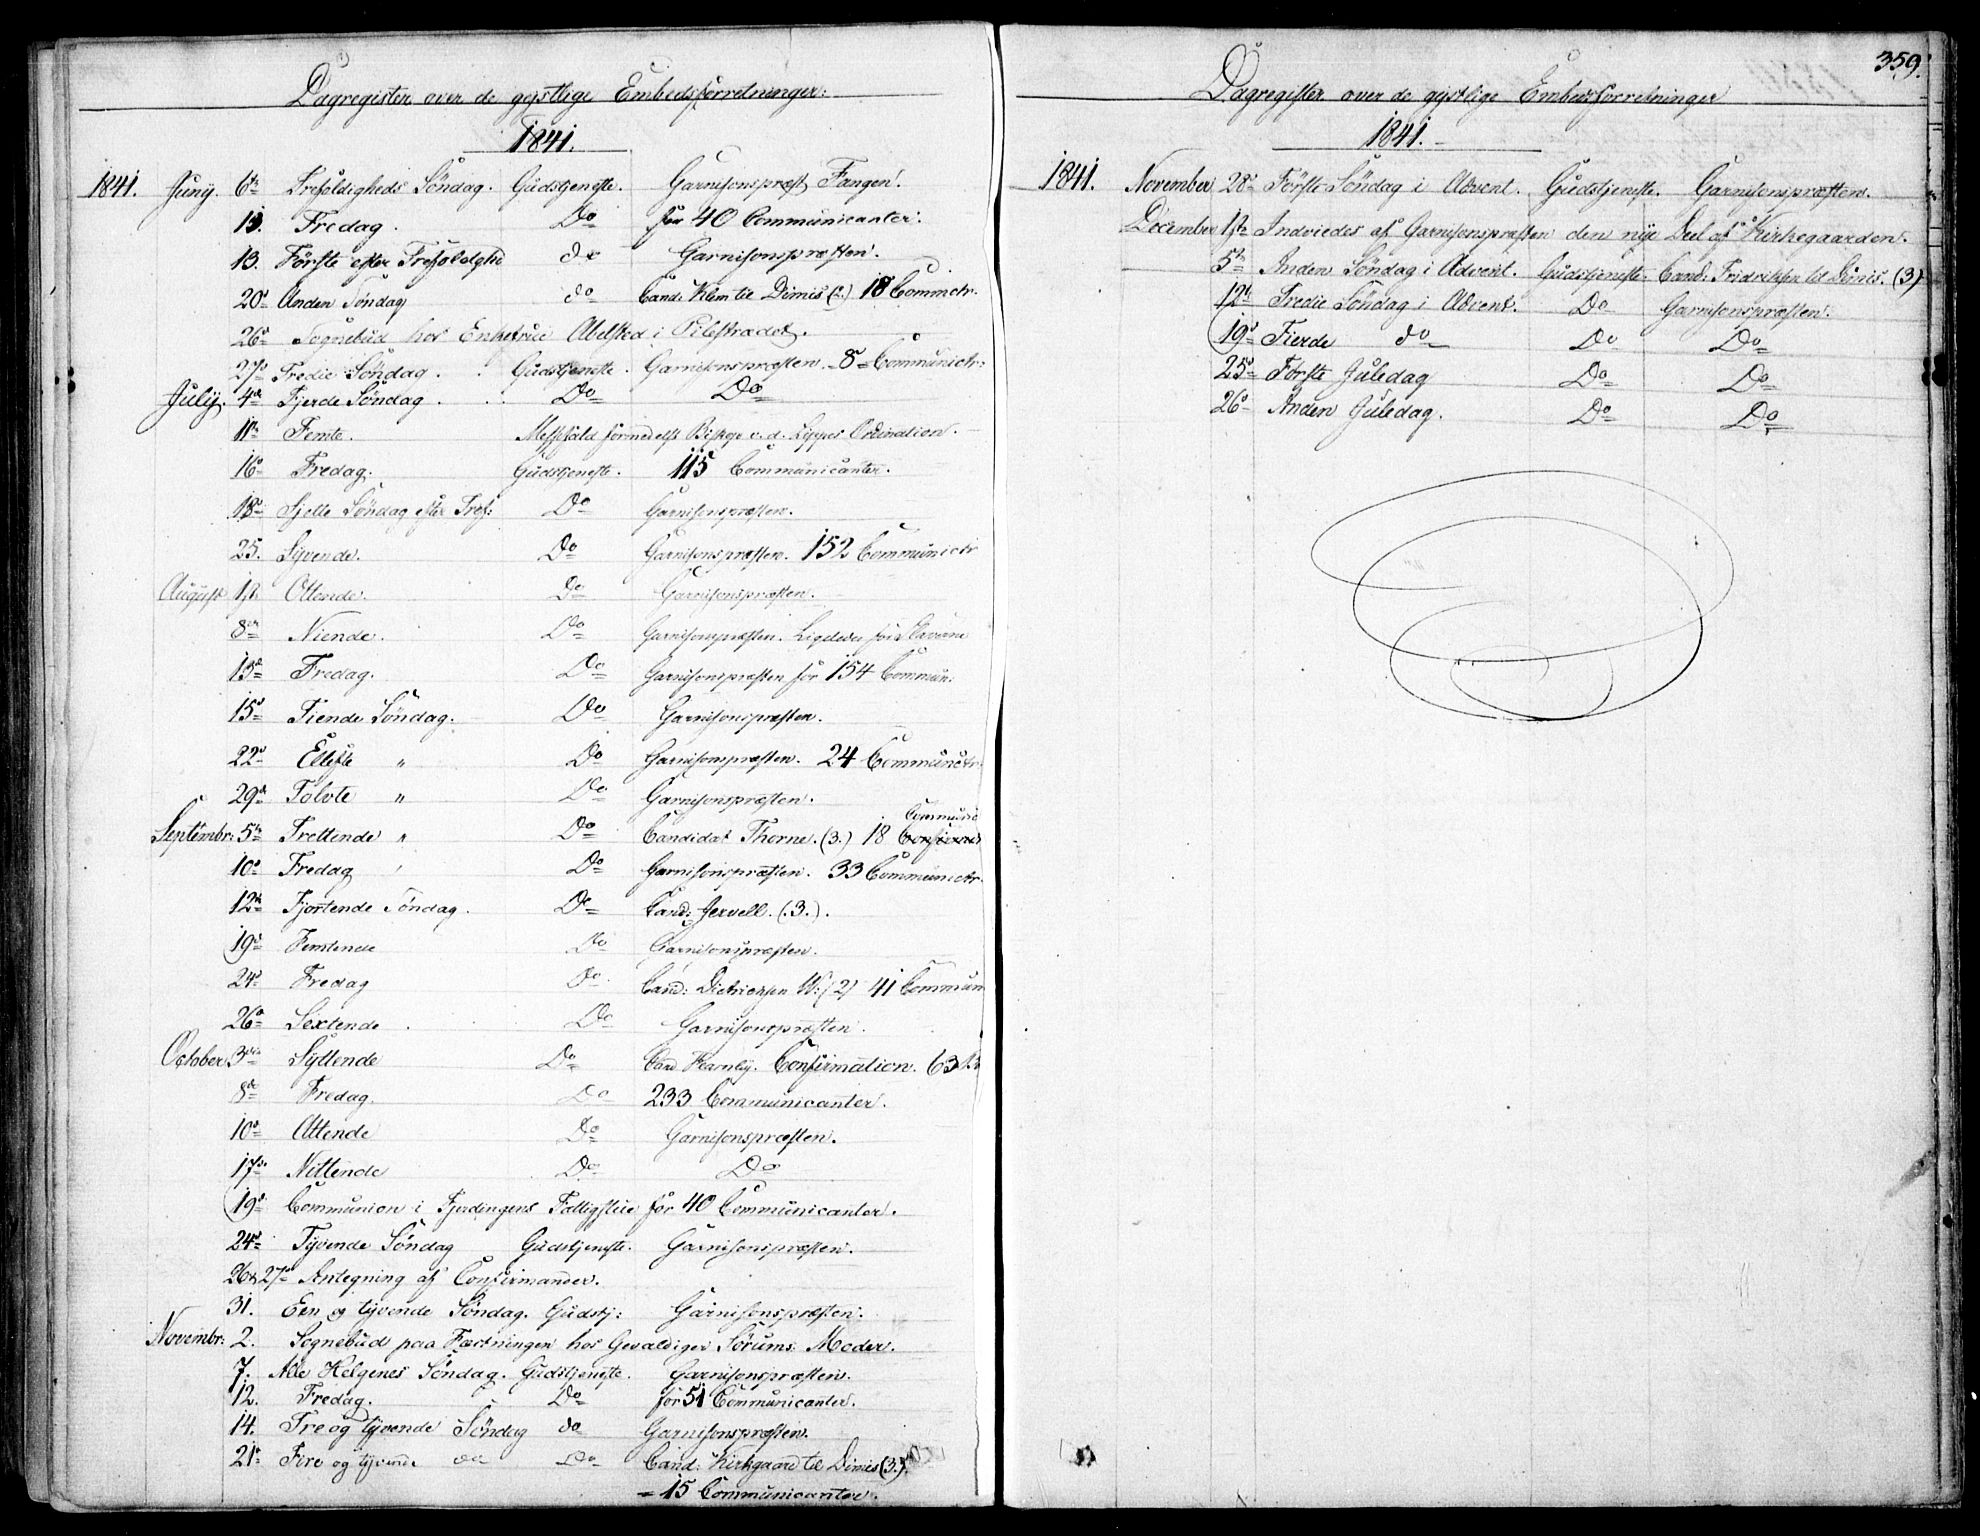 Dagregister over de gejstlige Embedsforretninger:
1841.
1841. Juny. 6te Trefoldigheds Söndag. Gudstjeneste. Garnisonspræst Fangen.
13. Fredag. Do for 40 Communicanter.
13. Förste efter Trefoldighd do Garnisonspræsten.
20de Anden Söndag do Cand: Klem til Dimis (2.) 18 Commctr.
26de Sognebud hos Enkefrue i Pilestrædet.
27de Tredie Söndag. Gudstjeneste. Garnisonspræsten. 8 Communictr:
July. 4de Fjerde Söndag. Do Do
11te Femte. Messefald formedelst Biskop v. d. Lippes Ordination.
16de Fredag. Gudstjeneste. 115 Communicanter.
18de Sjette Söndag efter Tref: Do Garnisonspræsten.
25. Syvende. Do Garnisonspræsten. 152 Communictr
August 1ste Ottende. Do Garnisonspræsten.
8de Niende. Do Garnisonspræsten. Ligeledes for Slaverne
13de Fredag. Do Garnisonspræsten for 154 Commun:
15de Tiende Söndag. Do Garnisonspræsten.
22de Ellefte " Do Garnisonspræsten. 24 Communctr.
29de Tolvte " Do Garnisonspræsten.
Communic
Septembr: 5te Trettende " Do Candidat Thorne. (3.) 18
10de Fredag Do Garnisonspræsten. 33 Communictr.
12te Fjortende Söndag. Do Cand: Jervell. (.3.).
19de Femtende Do Garnisonspræsten.
24de Fredag Do Cand: Dietrichsen W: (2) 41 Commun
26de Sextende Do Garnisonspræsten.
October 3die Syttende Do Cand Fearnley. Confirmation. 63
8de Fredag. Do 233 Communicanter.
10de Attende Do Garnisonspræsten.
17de Nittende Do Do
19de Communion i Fjerdingens Fattigstue for 40 Communicanter.
24de Tyvende Söndag Gudstjeneste. Garnisonspræsten.
26 & 27de Antegning af Confirmander.
31. Een og tyvende Söndag. Gudstj: Garnisonspræsten.
Novembr: 2. Sognebud paa Fæstningen hos Gevaldiger Sörums Moder.
7. Alle Helgenes Söndag. Gudstjeneste. Garnisonspræsten.
12. Fredag. Do for 51 Communicanter.
14. Tre og tyvende Söndag do Garnisonspræsten.
21de Fire og tyvende do Do Cand: Kirkgaard til Dimis (3.)
= 15 Communicanter.
359.
Dagregister over de gejstlige Embedsforretninger
1841.
1841. November 28de Förste Söndag i Advent. Gudstjeneste. Garnisonspræsten.
December 1ste Indviedes af Garnisonspræsten den nye Deel af Kirkegaarden.
5te Anden Söndag i Advent. Gudstjeneste. Cand: Fridrichsen til Dimis. (3)
12te Tredie Söndag i Advent. Do Garnisonspræsten.
19de Fierde do Do Do
25de Förste Juledag Do Do
26de Anden Juledag. Do Do